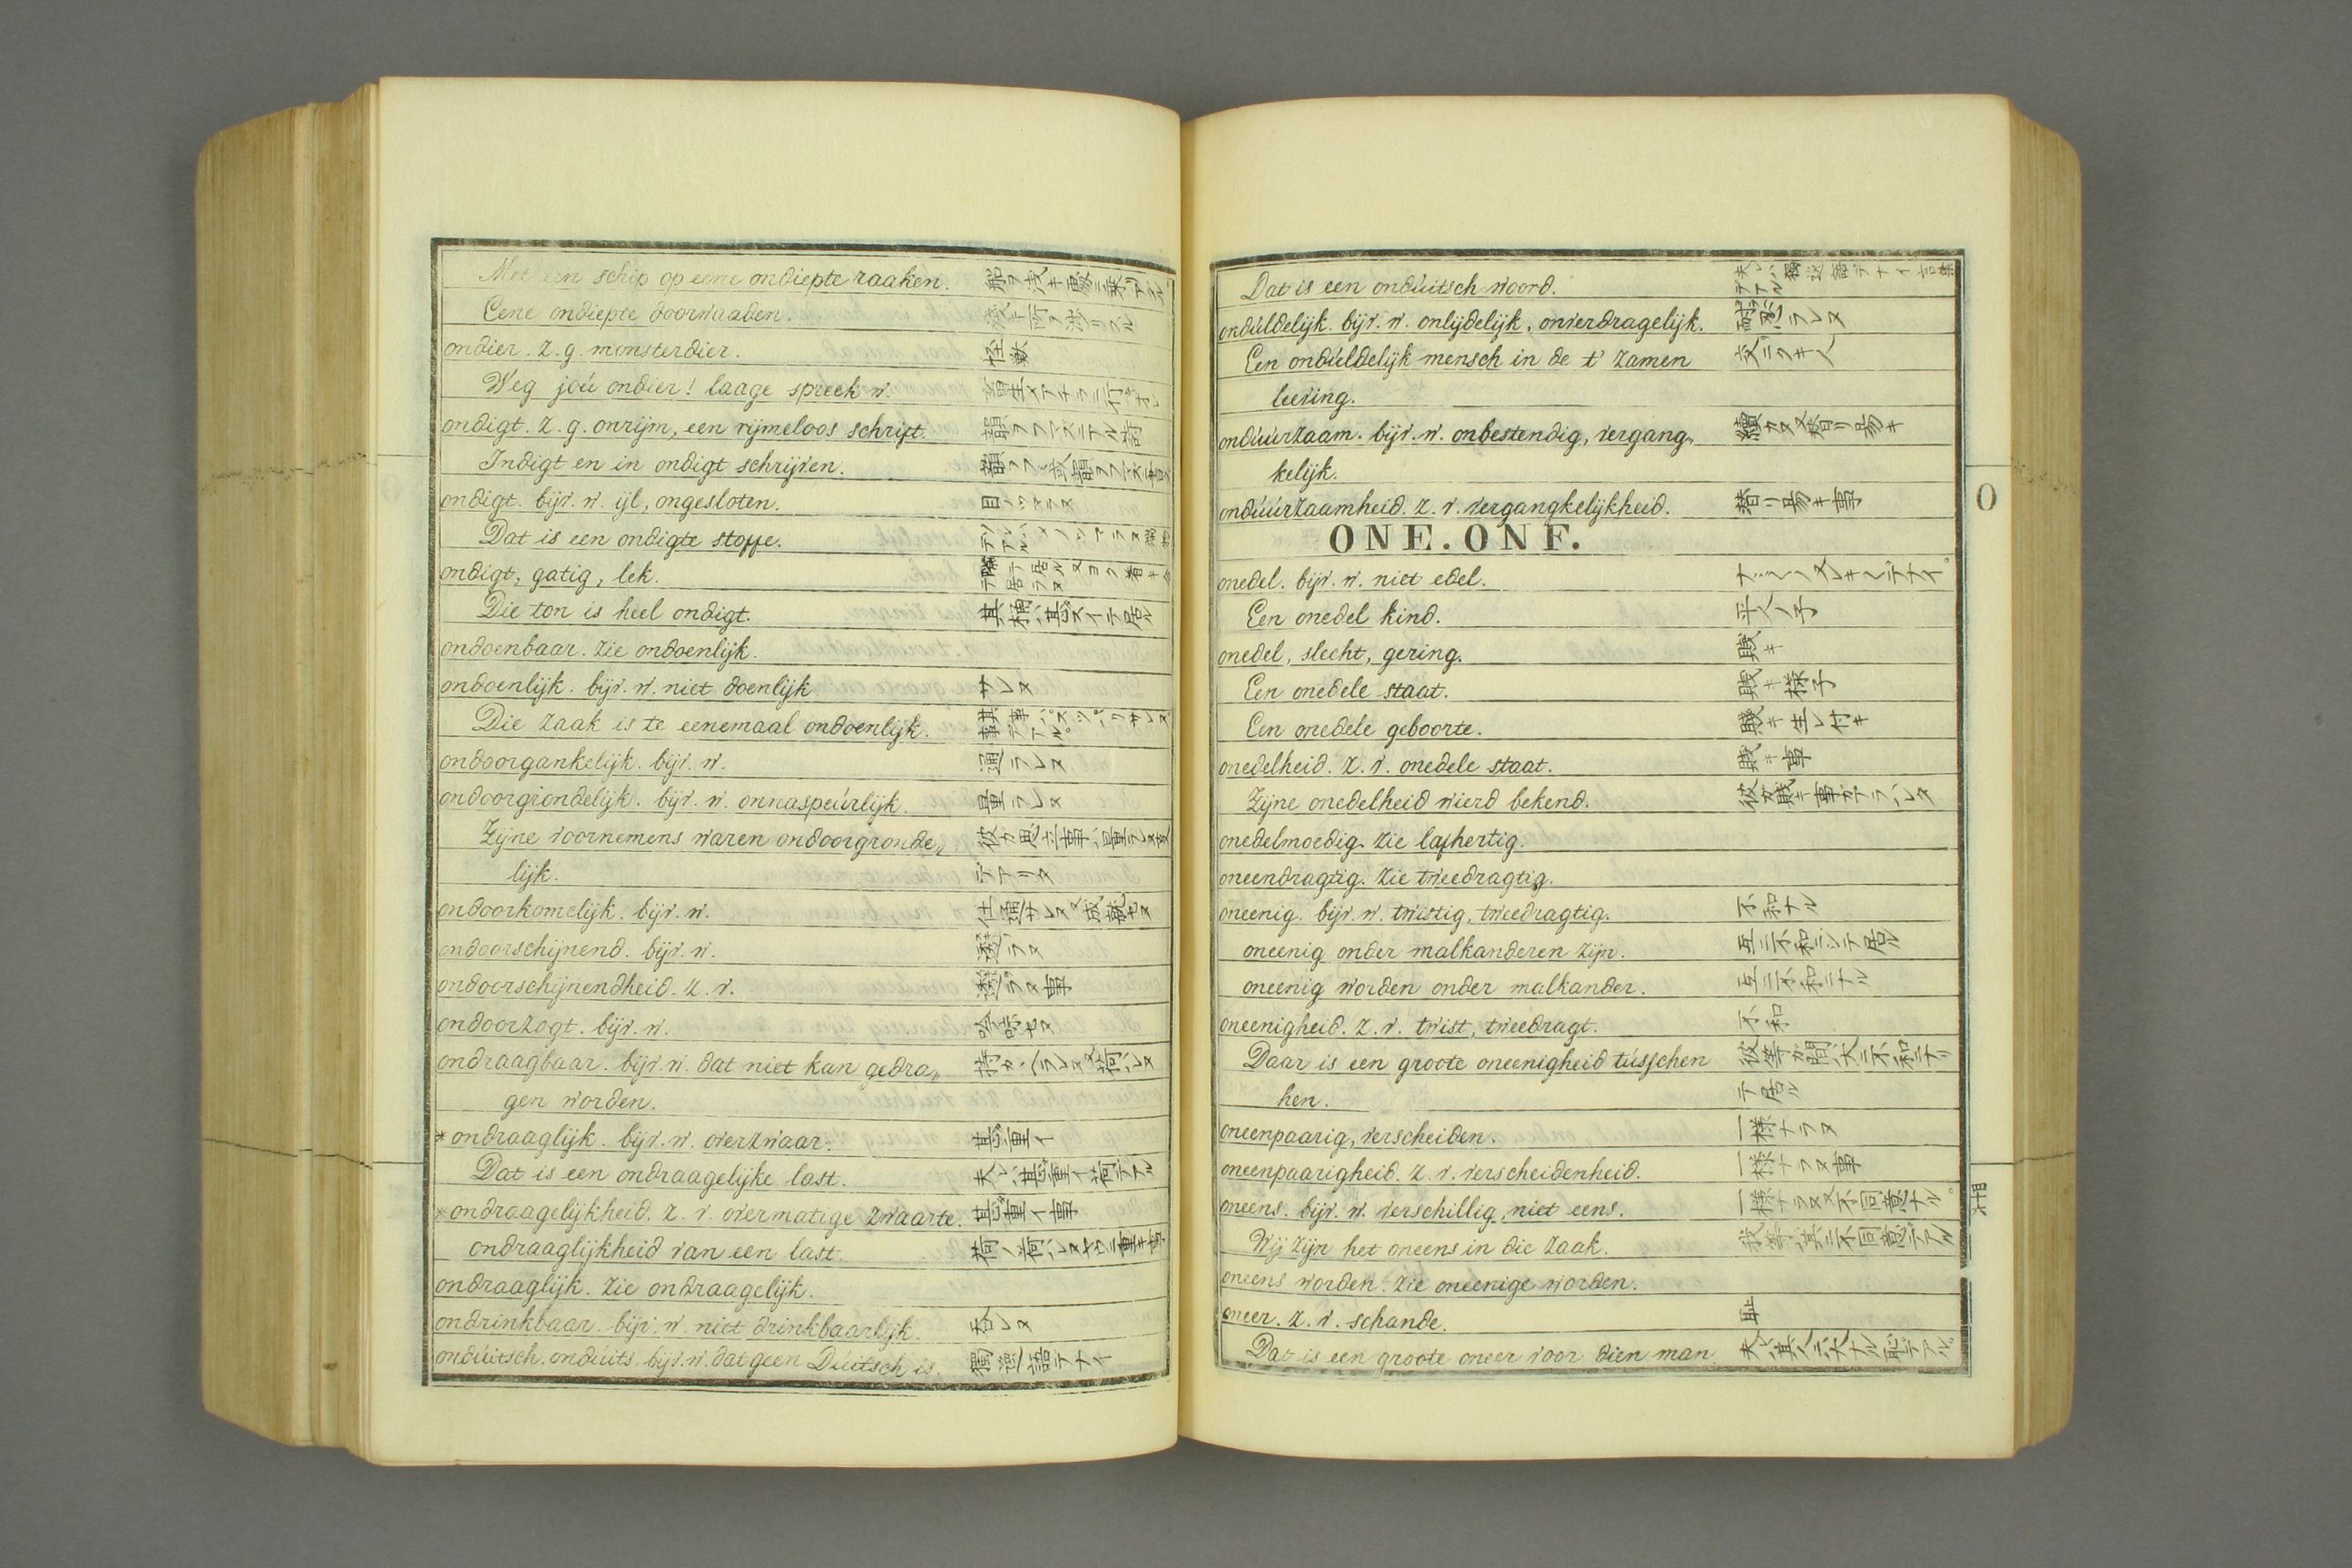 Met een schip op eene ondiepte raaken.
Eene ondiepte doorwaaden.
ondier. z. g. monsterdier. 怪獣
Weg joú ondier! laage spreek w.
ondigt. z. g. onrijm, een rijmeloos schrift.
Indigt en in ondigt schrijven.
ondigt. bijv. w. ijl, ongesloten. 目ノツマラヌ
Dat is een ondigte stoffe.
ondigt, gatig, lek.
Die ton is heel ondigt. 其桶ハ甚タスイテ居ル
ondoenbaar. zie ondoenlijk.
ondoenlijk. bijv. w. niet doenlijk サレヌ
Die zaak is te eenemaal ondoenlijk.
ondoorgankelijk. bijv. w. 通ラレヌ
ondoorgrondelijk. bijv. w. onnaspeúrlijk. 量ラレヌ
Zijne voornemens waren ondoorgronde„
lijk. デアリタ
ondoorkomelijk. bijv. w.
ondoorschijnend. bijv. w. 透ラヌ
ondoorschijnendheid. z. v. 透ラヌ事
ondoorzogt. bijv. w. 吟味セヌ
ondraagbaar. bijv. w. dat niet kan gedra„
gen worden.
*ondraaglijk. bijv. w. overzwaar. 甚重イ
Dat is een ondraagelijke last. 夫レハ甚重イ荷デアル
*ondraagelijkheid. z. v. overmatige zwaarte. 甚重イ事
ondraaglijkheid van een last.
ondraaglijk. zie ondraagelijk.
ondrinkbaar. bijv. w. niet drinkbaarlijk. 呑レヌ
ondúitsch. ondúits. bijv. w. dat geen Dúitsch is. 獨逸語テナイ
Dat is een ondúitsch woord.
ondúldelijk. bijv. w. onlijdelijk, onverdragelijk. 耐忍ラレヌ
Een ondúldelijk mensch in de t' zamen
leeving.
ondúúrzaam. bijv. w. onbestendig, vergang„ 續カヌ又替リ易キ
kelijk.
ondúúrzaamheid. z. v. vergangkelijkheid. 替リ易キ事
O
ONE. ONF.
onedel. bijv. w. niet edel.
Een onedel kind. 平人ノ子
onedel, slecht, gering. 賤キ
Een onedele staat. 賤キ様子
Een onedele geboorte. 賤キ生レ付キ
onedelheid. z. v. onedele staat. 賤キ事
Zijne onedelheid wierd bekend.
onedelmoedig. zie lafhertig.
oneendragtig. zie tweedragtig.
oneenig. bijv. w. twistig, tweedragtig. 不和ナル
oneenig onder malkanderen zijn. 互ニ不和ニシテ居ル
oneenig worden onder malkander. 互ニ不和ニナル
oneenigheid. z. v. twist, tweedragt. 不和
Daar is een groote oneenigheid tússchen 彼等ガ間ハ大ニ不和ニナリ
hen. テ居ル
oneenpaarig, verscheiden. 一様ナラヌ
oneenpaarigheid. z. v. verscheidenheid. 一様ナラヌ事
oneens. bijv. w. verschillig, niet eens. 一様ナラヌ又不同意ナル。
Wij zijn het oneens in die zaak.
oneens worden. zie oneenige worden.
oneer. z. v. schande. 耻
Dat is een groote oneer voor dien man. 夫レハ其人ニ大ナル恥デアル。